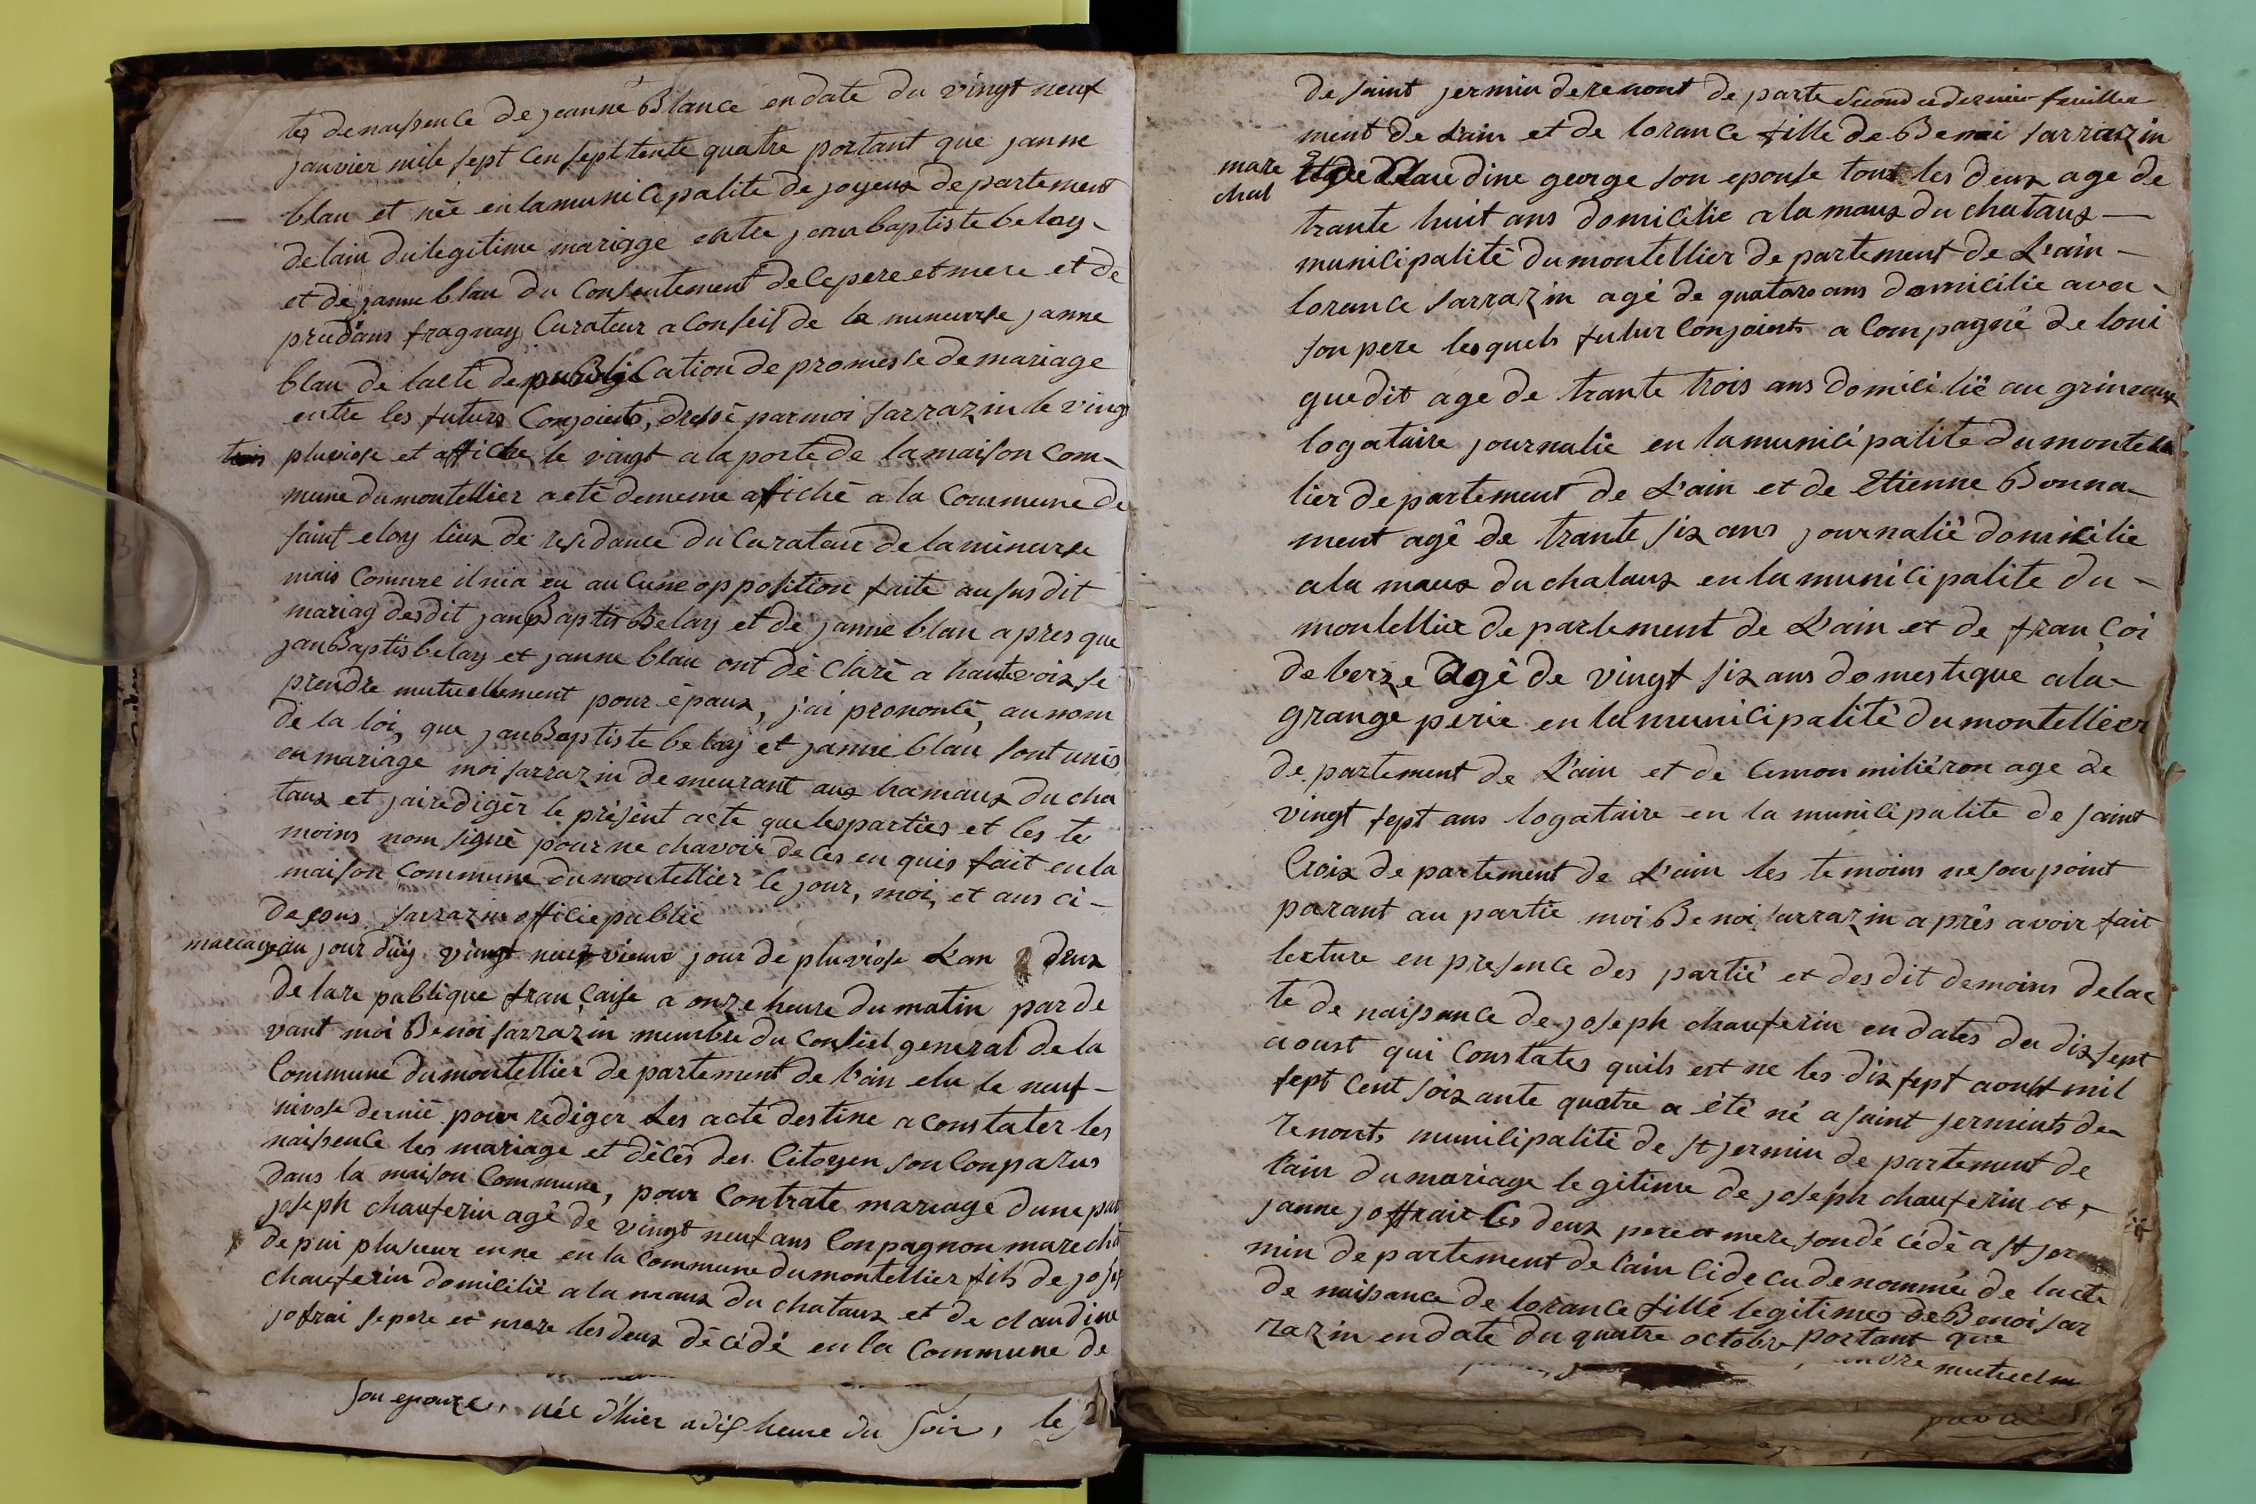 tes denaissence de jeanne Blance en date du vingt neuf
janvier mile sept cen sept tente quatre portant que janne
blan et née en lamunicipalite de joyeux departement
delain du legitime mariage entre jean baptiste belay
et de janne blan du Consentement de ce pere et mere et de
prudans fragnay Curateur a Conseil de la mineurse janne
blan de lacte de publication de promesse de mariage
entre les futurs Conjoints, dressé par moi sarrazin le vingt
trois pluviose et affiche le vingt a la porte de la maison Com-
mune du montellier a eté dememe affiché a la Commune de
saint eloy lieux de residance du Curateur de la mineurse
mais Comme il nia eu au Cune opposition faite au susdit
mariag desdit jan Baptis Belay et de janne blan apres que
jan Baptis belay et janne blan ont dé Claré a haute voix se
prendre mutuellement pour épaux, j'ai prononcé, au nom
de la loi, que jan Baptiste belay et janne blan sont unis
en mariage moi sarrazin demeurant aux hamaux du cha
taux et jai rediger le présent acte que les parties et les te
moins nom signé pour ne chavoir de ces en quis fait en la
maison Commune du montellier le jour, moi, et ans ci-
desus sarrazin officie public
mariage au jour duy vingt neuf vieme jour de pluviose L'an deux
de lare publique francaise a onze heure du matin par de
vant moi Benoi sarrazin membre du Consiel general de la
Commune du montellier departement de l'ain elu le neuf-
nivose dernié pour rediger Les acte destine a constater les
naissence les mariage et décés des Citoyen son Conparus
dans la maison Commune, pour Contrate mariage dune part
joseph chauferin agé de vingt neuf ans Conpagnon marecha
de pui plusieur enne en la Commune du montellier fils de josef
chauferin domicilié a la maux du chataux et de claudine
jofrai se pere et mere les deux décédé en la Commune de
son epouze, née d'hier a dix heure du soir, le
de saint jermin de renont de parte second et dernier feuillet
ment de L'ain et de lorance fille de Benoi sarrazin
mare
chal
et de Claudine george son epouse tout les deux age de
trante huit ans domicilié a la maux du chataux
municipalité du montellier departement de L'ain
lorance sarrazin agé de quatorz ans domicilie avec
son pere lesquels futur Conjoints a Compagné de loui
guedit age de trante trois ans domicilié au grineaux
logataire journalie en la municipalite du monte
lier departement de L'ain et de Etienne Bonna-
ment agé de trante six ans journalié domicilie
a la maux du chataux en la municipalite du
montellier departement de L'ain et de fran Coi
deberze agé de vingt six ans domestique a la
grange perie en la municipalité du montellier
departement de L'ain et de Cemon miliéron age de
vingt sept ans logataire en la municipalite de saint
Croix departement de L'ain les temoins ne son point
parant au partie moi Benoi sarrazin aprés avoir fait
lecture en presence des partié et desdit demoins de lac
te de naissance de joseph chauferin en dates du dix sept
aoust qui Constates quils est ne les dix sept aoust mil
sept cent soixante quatre a été né a saint jermints de
renonts municipalité de st jermin departement de
l'ain du mariage legitime de joseph chauferin et
janne joffrait les deux pere et mere son dé cédé a st jer
min departement de l'ain ci de cu denommé de lacte
de naissance de lorance fille legitimes de Benoi sar
razin en date du quatre octobre portant que